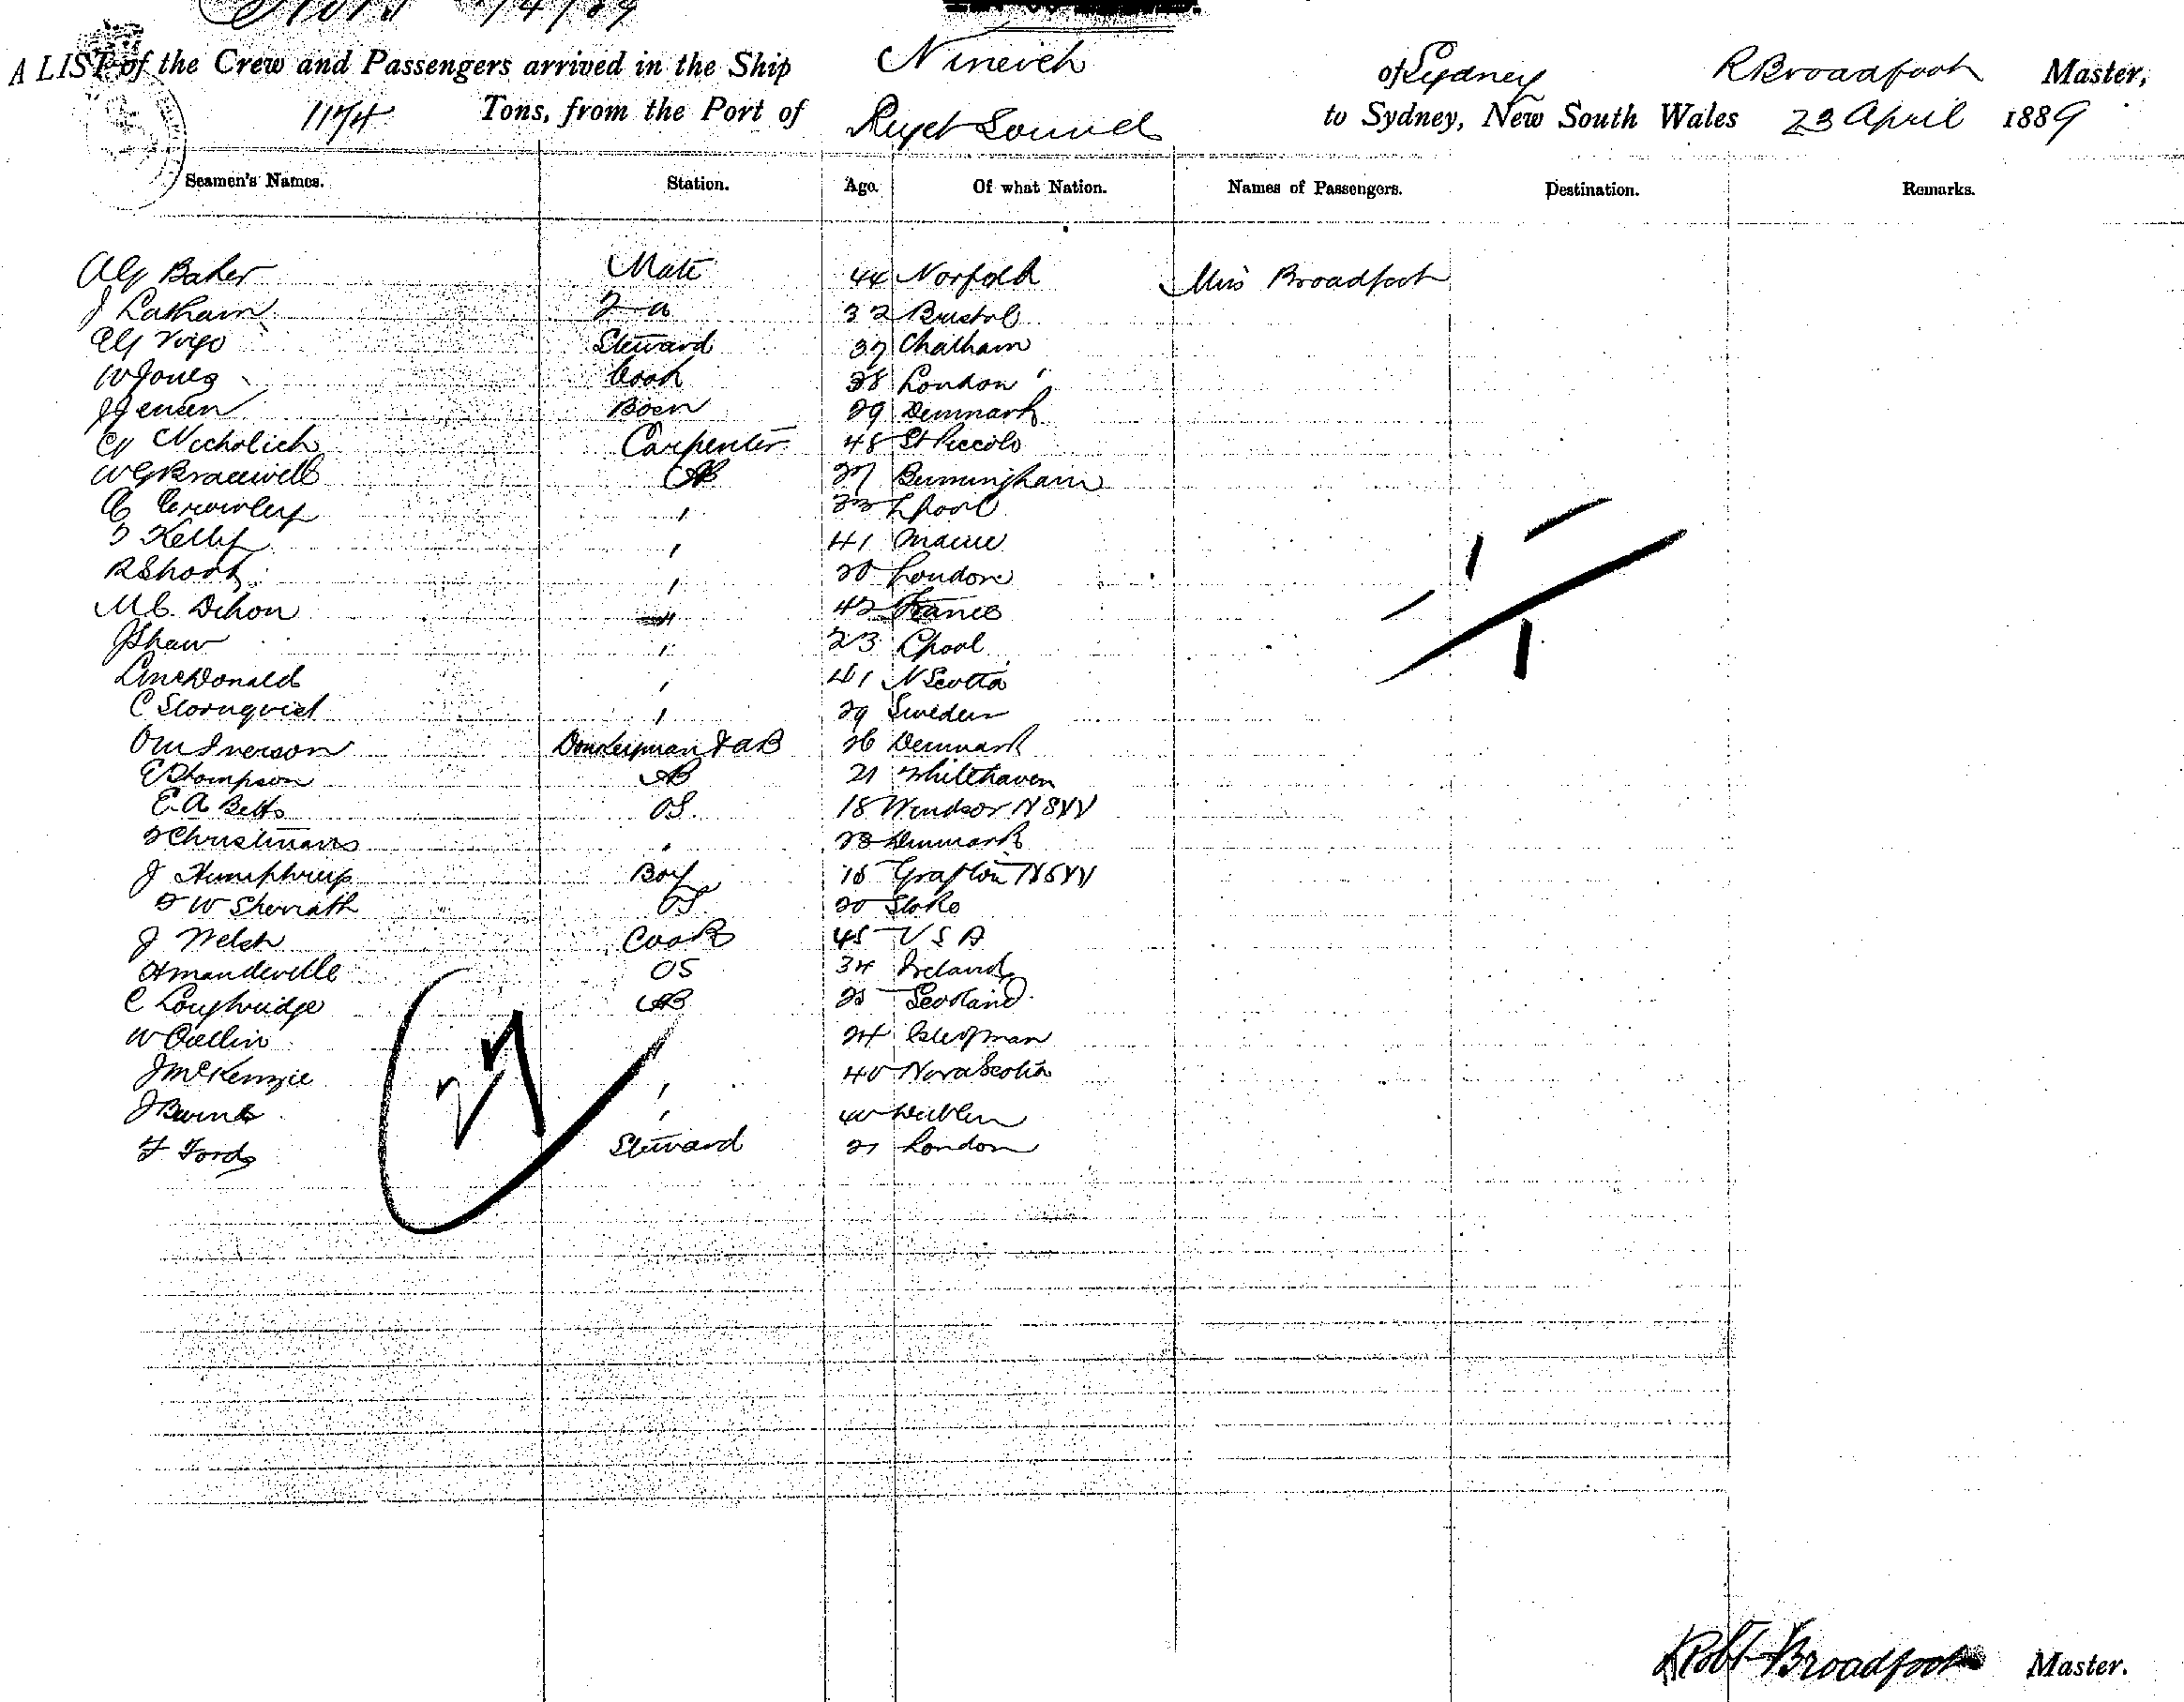 A LIST of the Crew and Passengers arrived in the Ship Nineveh of Sydney R Broadfoot Master,
1174 Tons, from the Port of Puget Sound to Sydney, New South Wales 23 April 1889
Seamen's Names. Station. Age. Of what Nation. Names of Passengers. Destination. Remarks.
Baker Mate 44 Norfolk Broadfoot
J Latham 2 32 Bristol
Vigo Steward 37 Chatham
W Jones Cook 38 London
J Jensen Bosn 29 Denmark
Nicholich Carpenter 48 St Piccolo
W G Bracewell AB 27 Birmingham
C Crowley " Lpool
Kelly " 41
R Short " 20 London
M C Dihon " 42 France
J Shaw " 23 Lpool
L McDonald " 41 N Scotia
C Stornqvist " 29 Sweden
O M Iverson Donkeyman & AB 26 Denmark
E Thompson AB 21 Whitehaven
E. A Betts OS. 18 Windsor NSW
Christinans " 28 Denmark
J Humphreys Boy Grafton NSW
W Sherrath OS 20 Stoke
J Welsh Cook 45 U S A
H Mandeville OS 34 Ireland
C Loughridge AB 25 Scotland
W Callin 24 Isle of Man
J McKenzie " 40 Nova Scotia
J " Dublin
F Ford Steward 21 London
Robt Broadfoot Master.